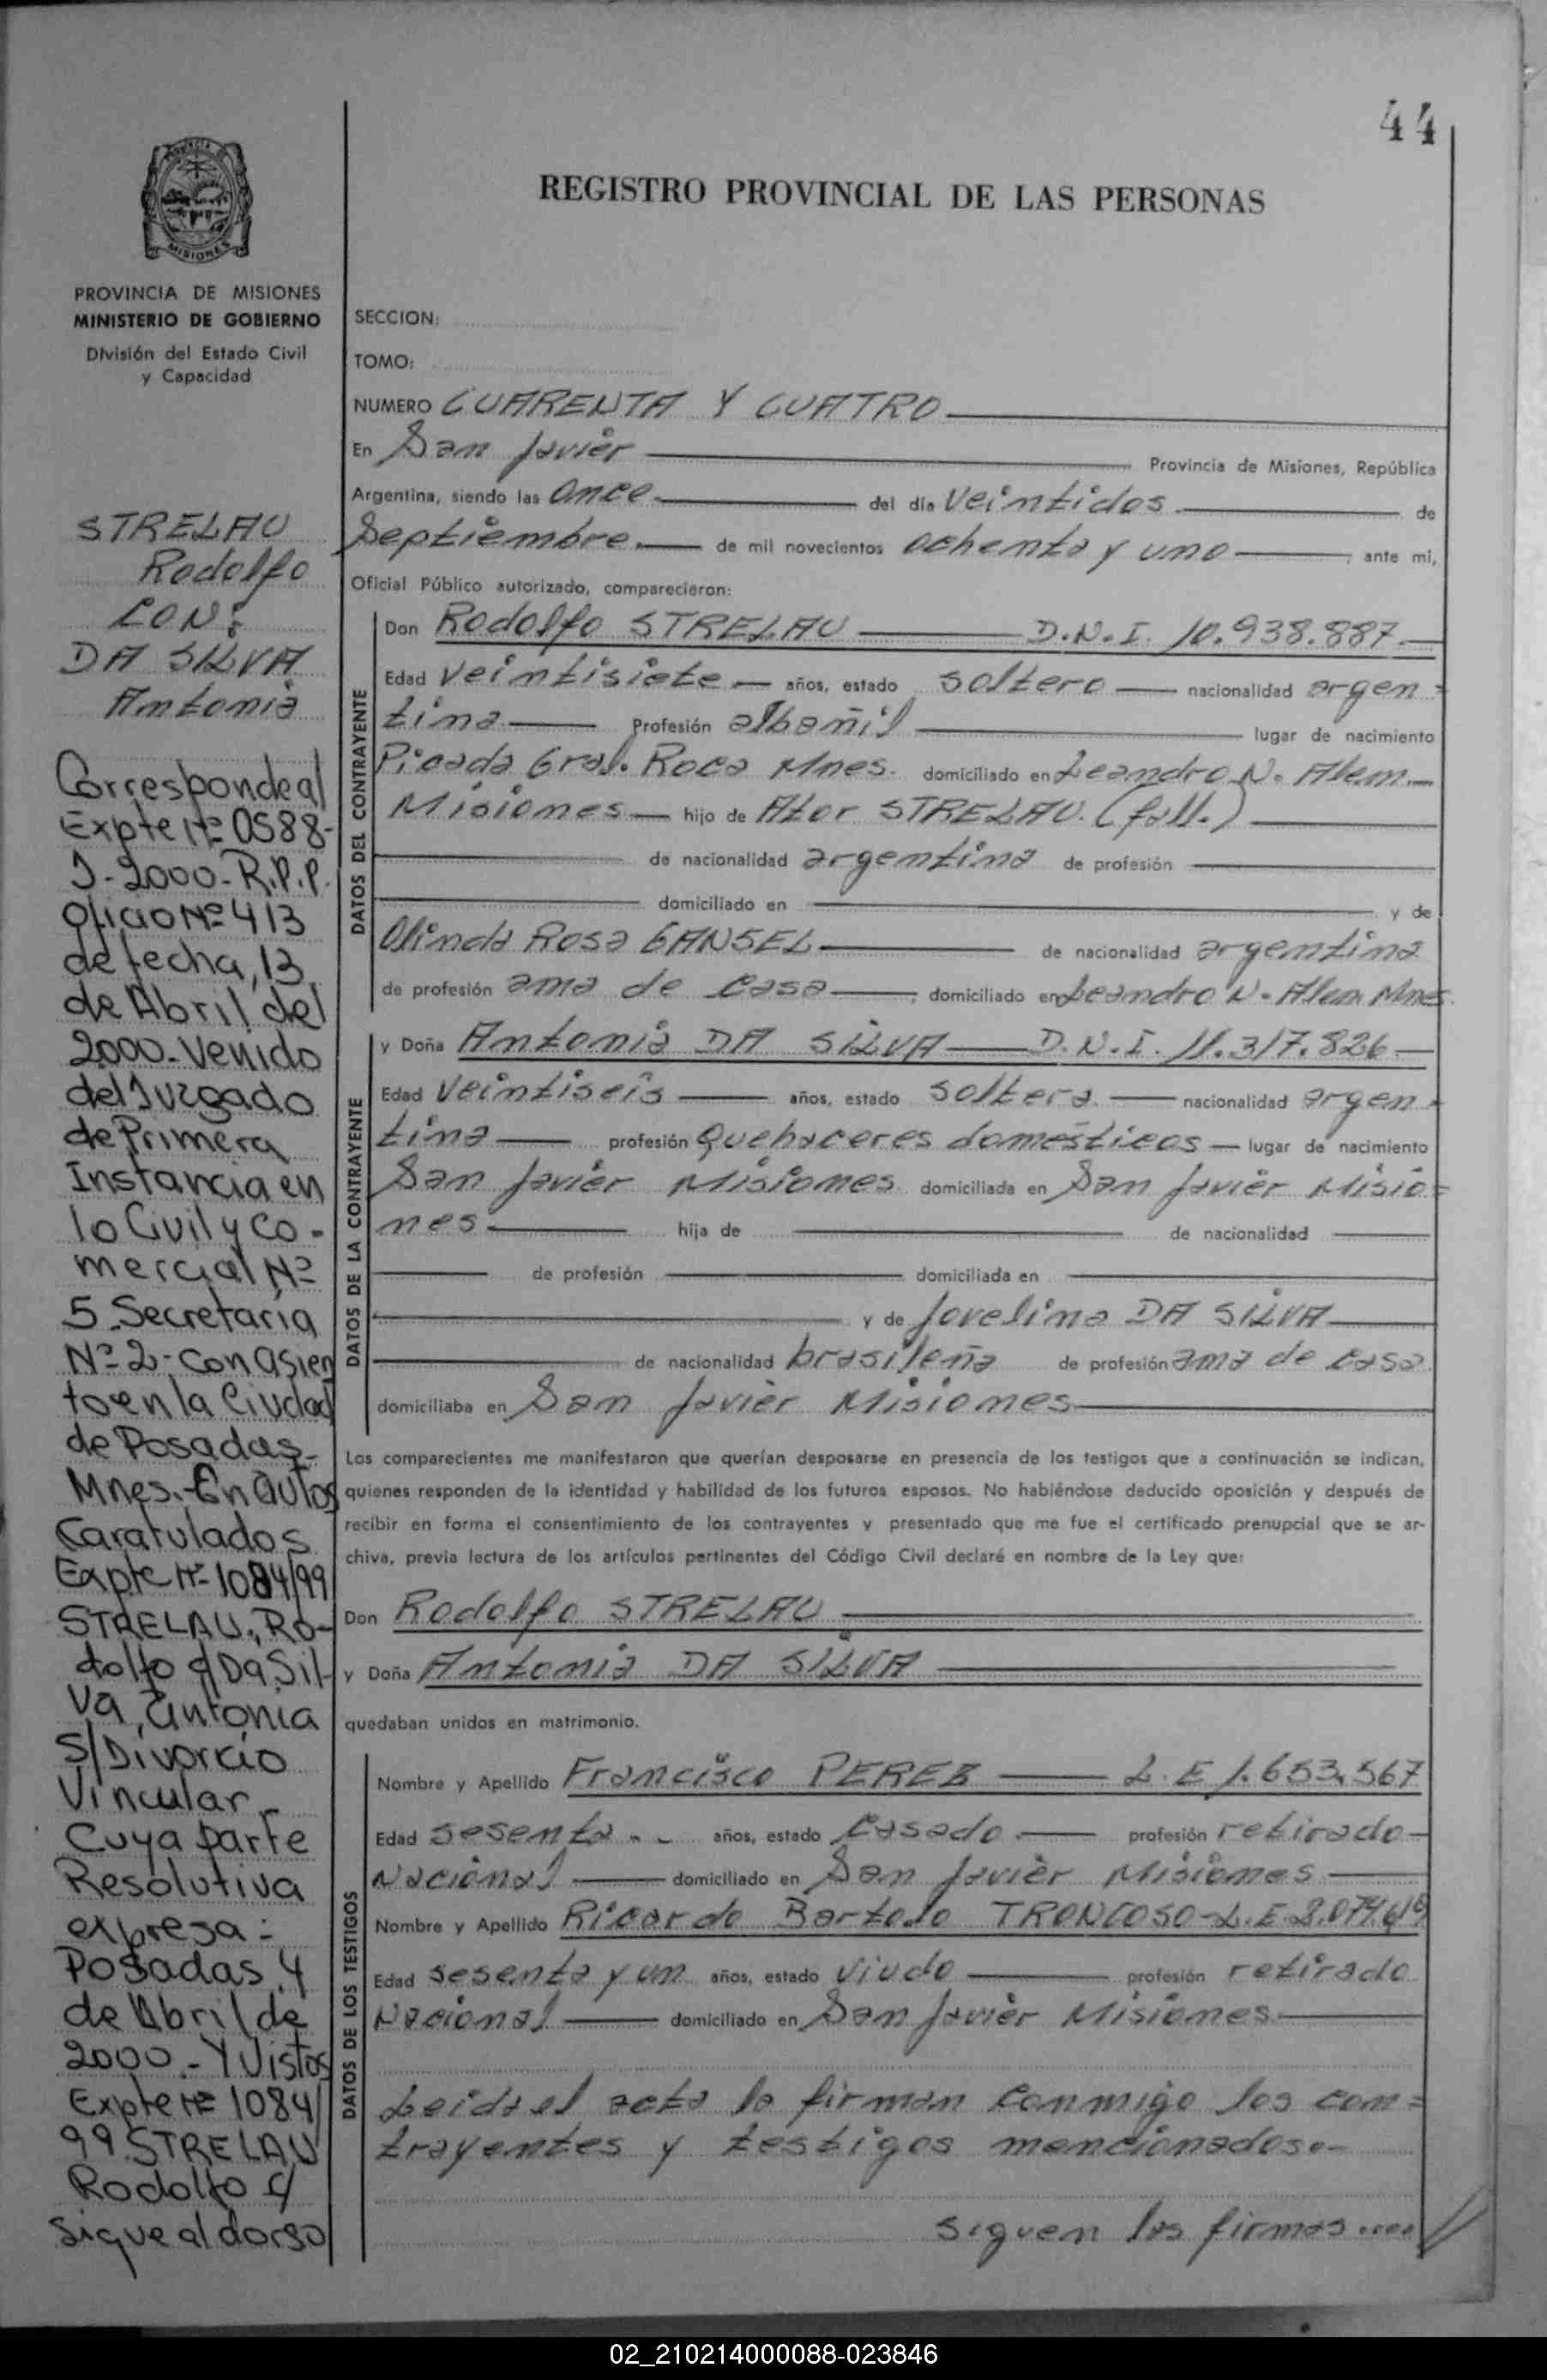 44
REGISTRO PROVINCIAL DE LAS PERSONAS
PROVINCIA DE
MISIONES
PROVINCIA DE MISIONES
MINISTERIO DE GOBIERNO
División del Estado Civil
y Capacidad
STRELAU
Rodolfo
CON:
DA SILVA
Antonia
Corresponde al
Expte Nº 0588-
J-2000-R.P.P.
Oficio Nº 413
de fecha, 13
de Abril del
2000-Venido
del Juzgado
de Primera
Instancia en
lo Civil y Co-
mercial Nº
5 Secretaria
Nº 2-con asien
to en la Ciudad
de Posadas-
Mnes.-En autos
Caratulados
Expte Nº 1084/99
STRELAU, RO-
dolfo c/ Da Sil-
va, Antonia
S/Divorcio
Vincular
Cuya parte
Resolutiva
expresa:
Posadas, 4
de Abril de
2000.-Y Vistos
Expte Nº 1084/
99 STRELAU
Rodolfo c/
sigue al dorso
SECCION:
TOMO:
NUMERO CUARENTA Y CUATRO
En San Javier Provincia de Misiones, República
Argentina, siendo las once del día veintidos de
Septiembre de mil novecientos ochenta y uno, ante mi,
Oficial Público autorizado, comparecieron:
DATOS DEL CONTRAYENTE
Don Rodolfo STRELAU D.N.I. 10.938.887
Edad veintisiete años, estado soltero nacionalidad argen=
tina Profesión albañil lugar de nacimiento
Picada Gral. Roca Mnes. domiciliado en Leandro N. Alem
Misiones hijo de Ator STRELAU. (fall.)
de nacionalidad argentina de profesión
domiciliado en y de
Olinda Rosa GANSEL de nacionalidad argentina
de profesión ama de casa, domiciliado en Leandro N. Alem Mnes.
DATOS DE LA CONTRAYENTE
y Doña Antonia DA SILVA D.N.I. 11.317.826
Edad veintiseis años, estado soltera nacionalidad argen=
tina profesión Quehaceres domésticos lugar de nacimiento
San Javier Misiones domiciliada en San Javier Misio=
nes hija de de nacionalidad
de profesión domiciliada en
y de Jovelina DA SILVA
de nacionalidad brasileña de profesión ama de casa
domiciliaba en San Javier Misiones
Los comparecientes me manifestaron que querían desposarse en presencia de los testigos que a continuación se indican,
quienes responden de la identidad y habilidad de los futuros esposos. No habiéndose deducido oposición y después de
recibir en forma el consentimiento de los contrayentes y presentado que me fue el certificado prenupcial que se ar-
chiva, previa lectura de los artículos pertinentes del Código Civil declaré en nombre de la Ley que:
Don Rodolfo STRELAU
y Doña Antonia DA SILVA
quedaban unidos en matrimonio.
DATOS DE LOS TESTIGOS
Nombre y Apellido Francisco PEREZ L.E 1.653.567
Edad sesenta años, estado casado profesión retirado
Nacional domiciliado en San Javier Misiones
Nombre y Apellido Ricardo Bartolo TRONCOSO-L.E
Edad sesenta y un años, estado viudo profesión retirado
Nacional domiciliado en San Javier Misiones
Leida el acta la firman conmigo los con=
trayentes y testigos mencionados.-
siguen las firmas....
02_210214000088-023846